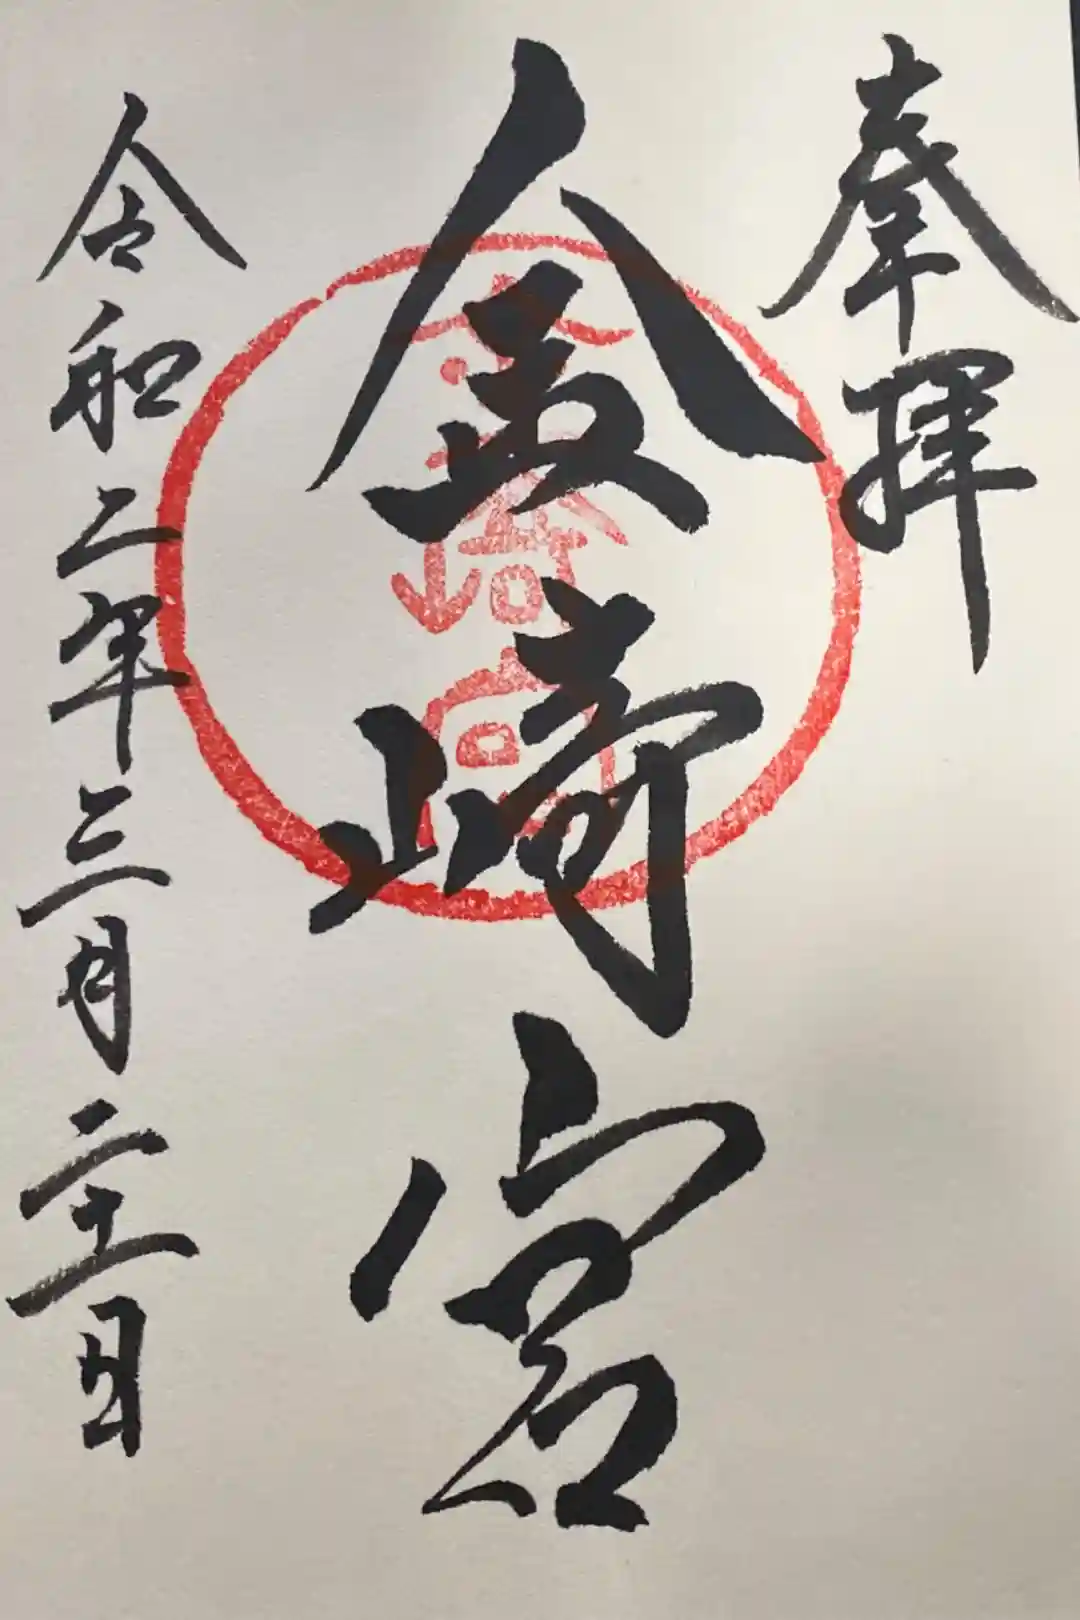 奉拝
金崎宮
金崎宮
令和二年三月二十一日